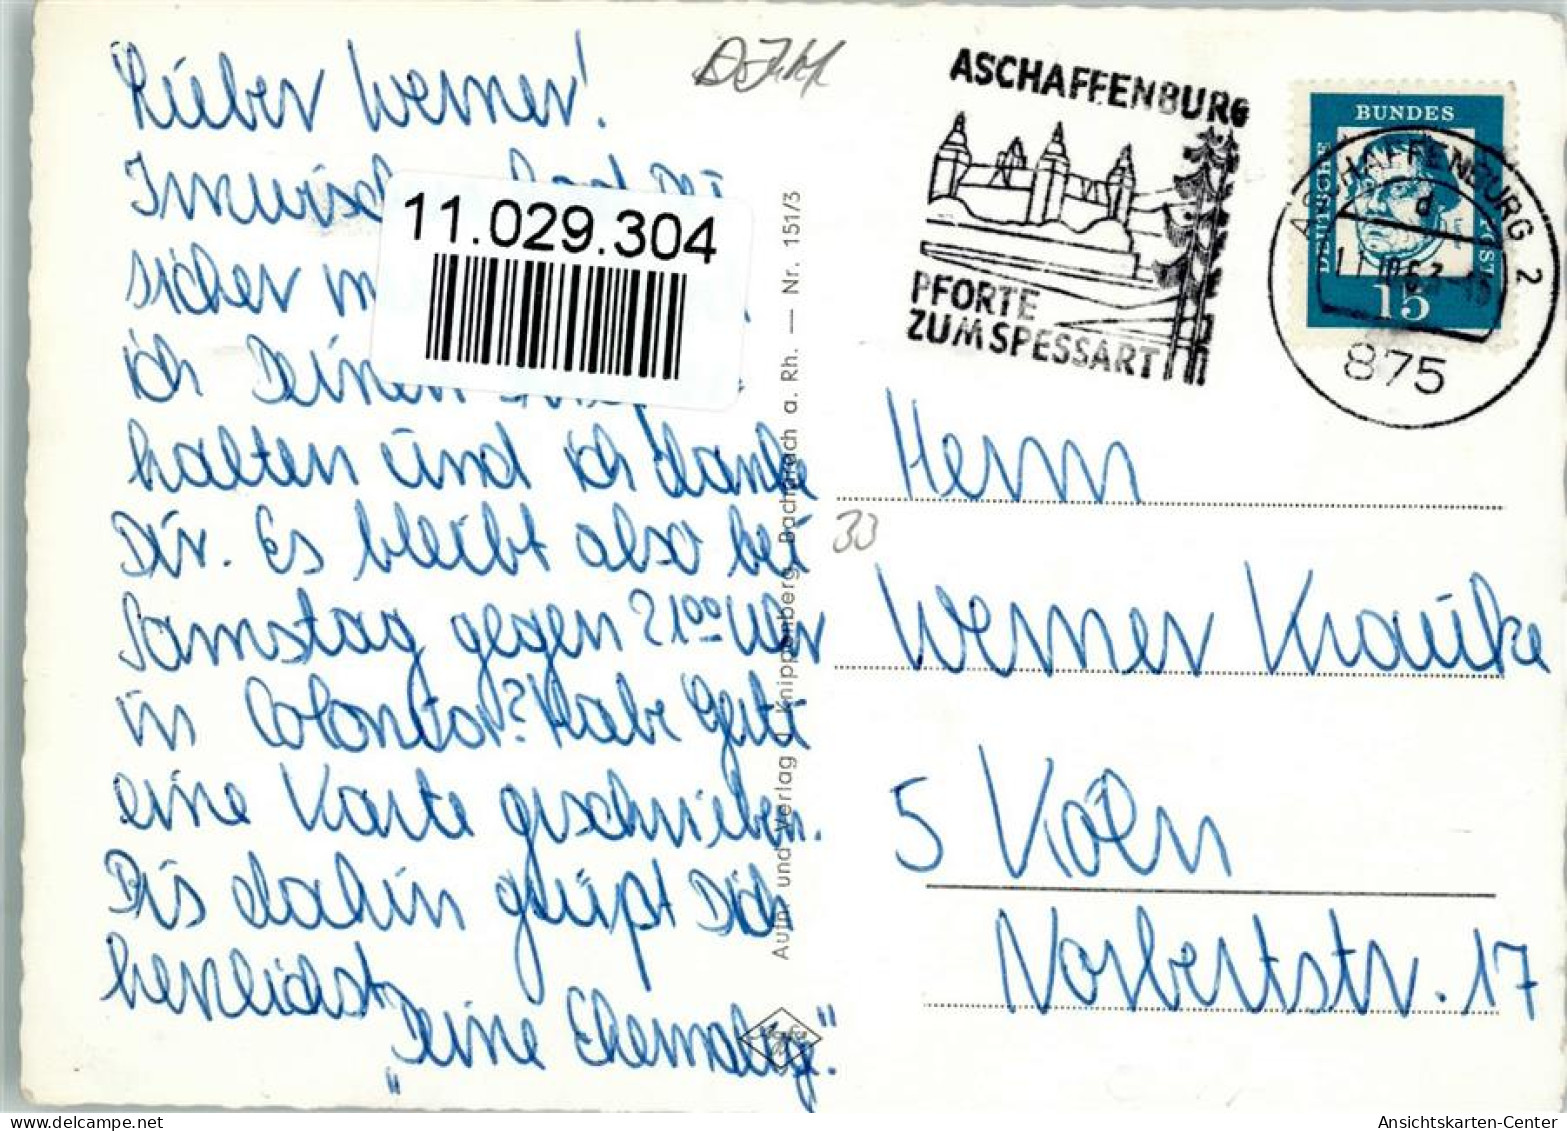 Lieber Werner!
Inzwisch
sicher m
ich Deinen
halten und ich danke
Dir. Es bleibt also bei
Samstag gegen 21⁰⁰ Uhr
in Colonia? Habe Gerti
eine Karte geschrieben.
Bis dahin grüßt Dich
herzlichst
„Deine Ehemalige."
11.029.304
Aufn. und Verlag J. Knippenberg, Bacharach a. Rh. — Nr. 151/3
ASCHAFFENBURG
PFORTE
ZUM SPESSART
DEUTSCHE BUNDESPOST
15
ASCHAFFENBURG 2
d
11.10.63
875
33
Herrn
Werner Krauike
5 Köln
Norbertstr. 17
Ansichtskarten-Center